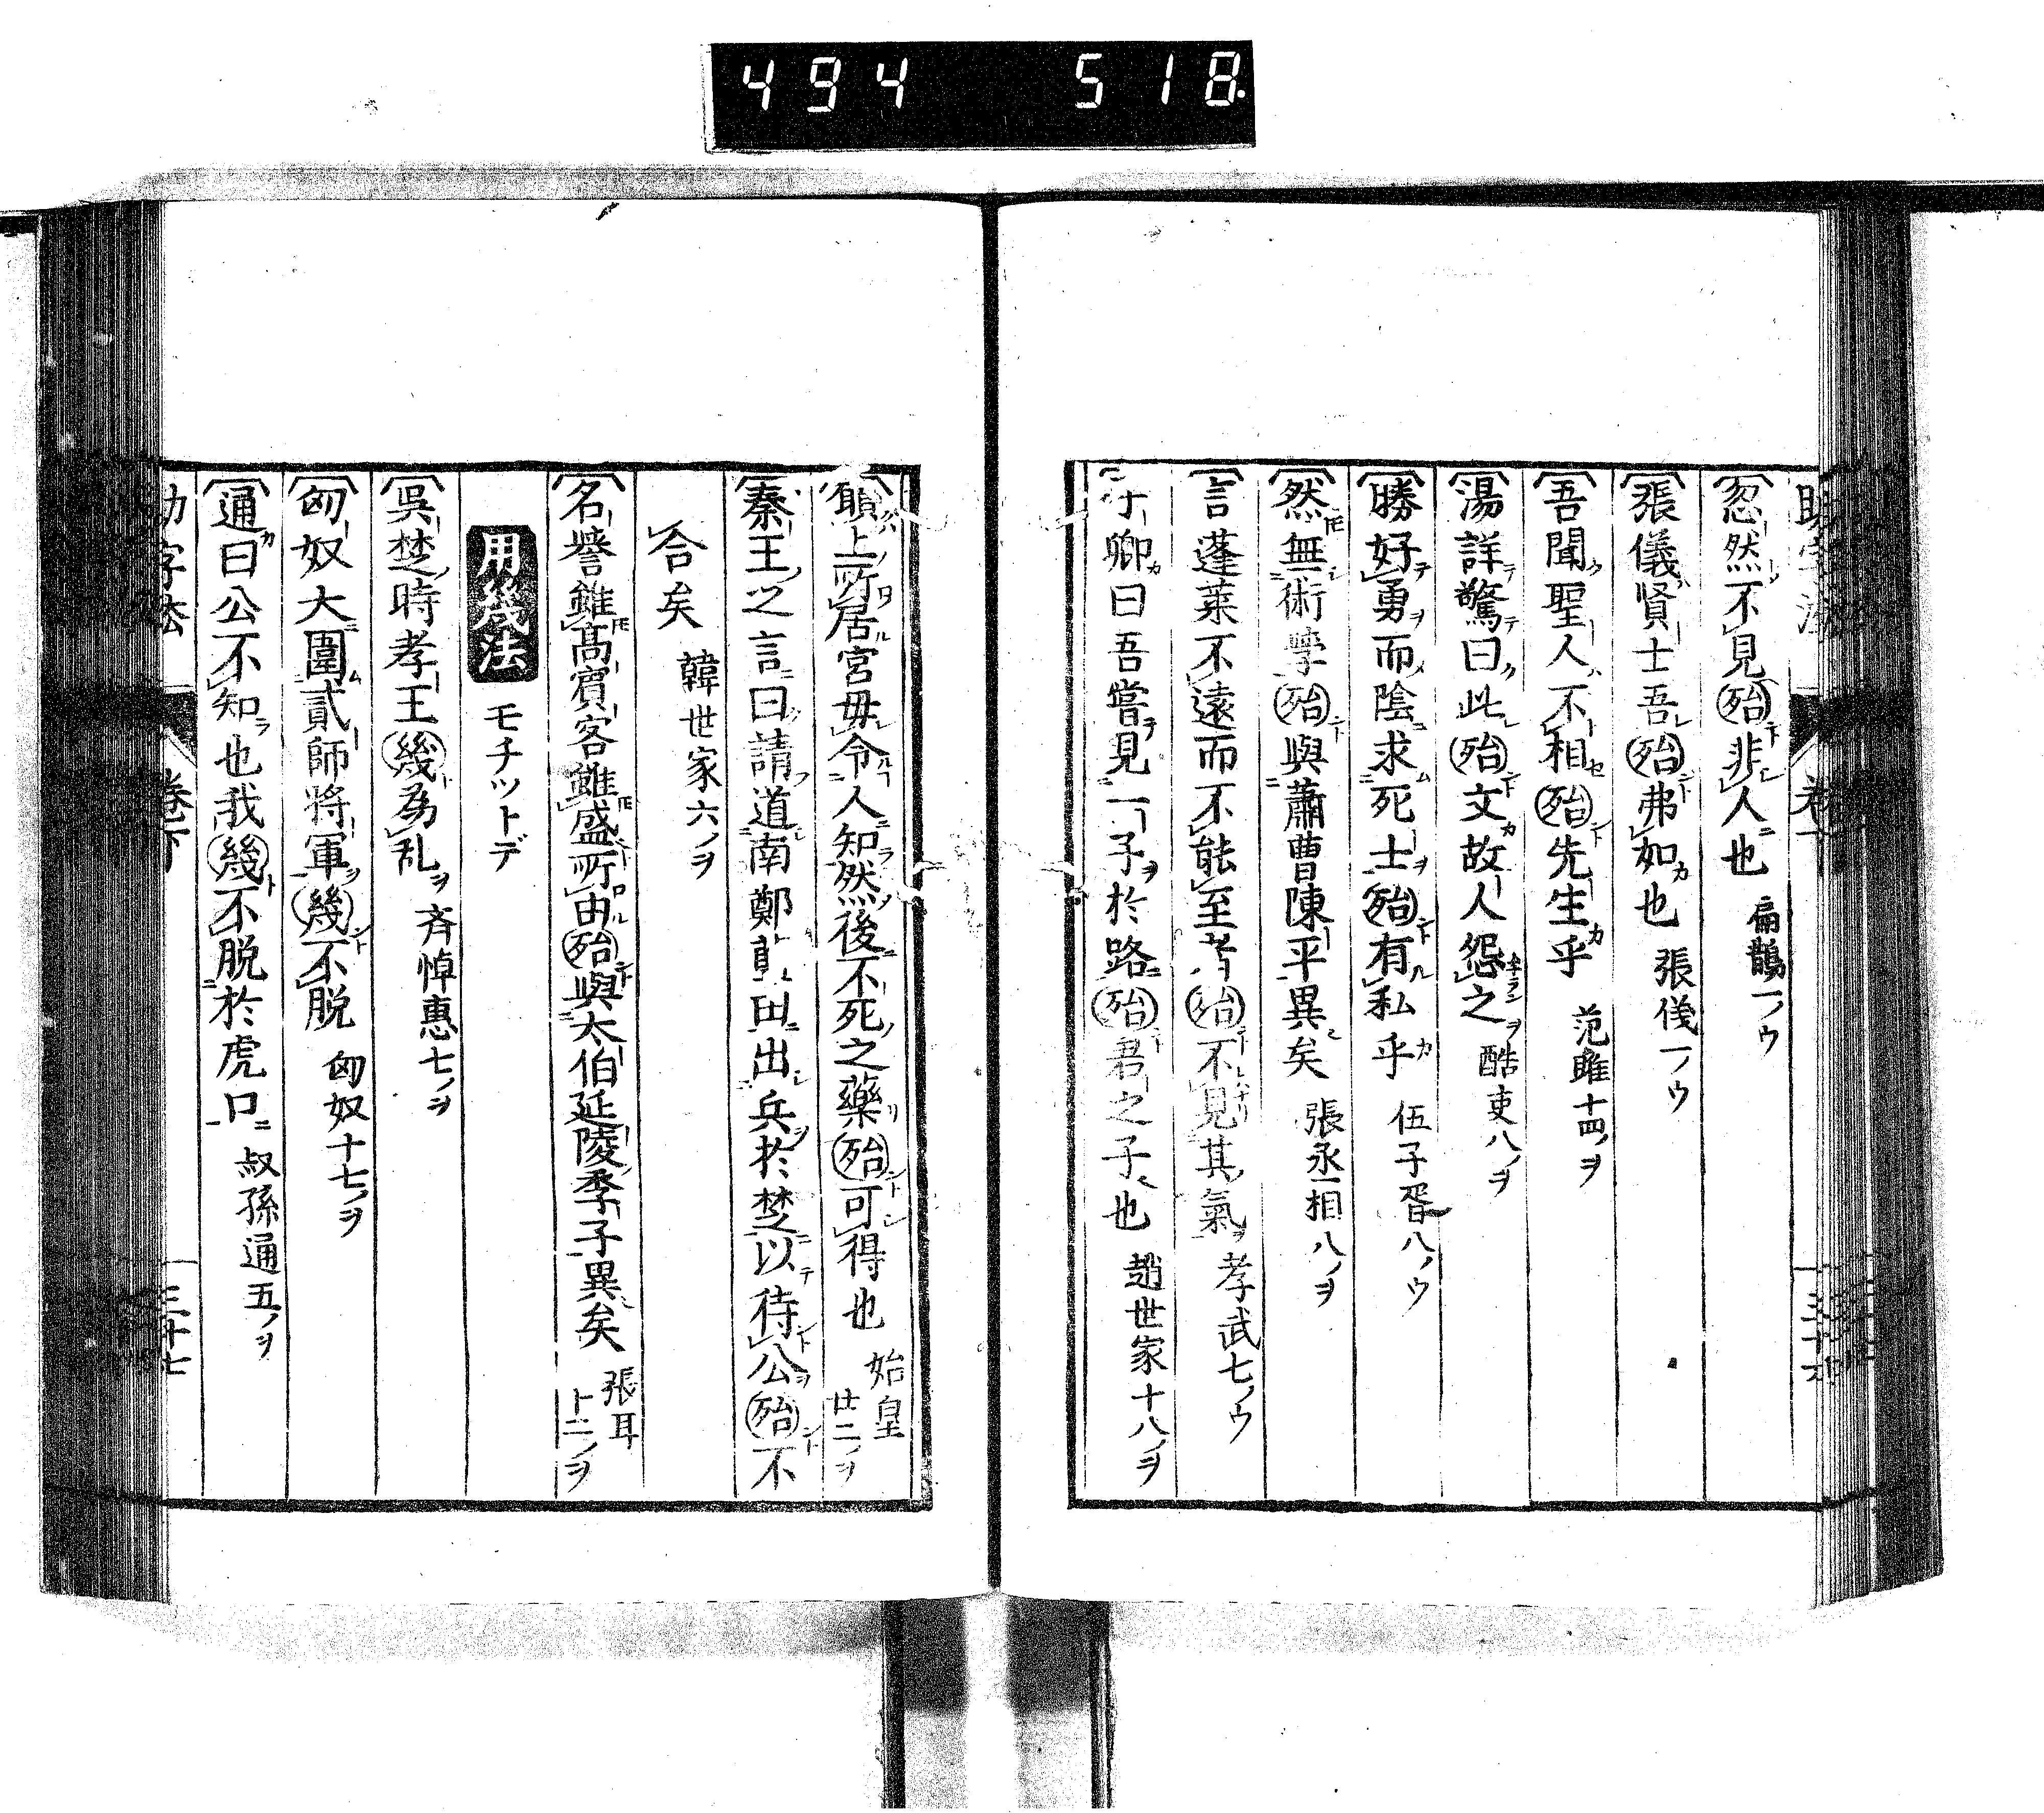 494 518
忽然不見殆非人也 扁鵲一ノウ
張儀賢士吾殆弗如也 張儀一ノウ
吾聞聖人不相殆先生乎 范雎十四ノヲ
湯詳驚曰此殆文故人怨之 酷吏八ノヲ
勝好勇而陰求死士殆有私乎 伍子胥八ノウ
然無術學殆與蕭曹陳平異矣 張丞相八ノヲ
言蓬莱不遠而不能至者殆不見其氣 孝武七ノウ
子卿曰吾嘗見一子於路殆君之子也 趙世家十八ノヲ
願上所居宮毋令人知然後不死之藥殆可得也 始皇廿二ノヲ
秦王之言曰請道南鄭藍田出兵於楚以待公殆不
合矣 韓世家六ノヲ
名誉雖髙賓客雖盛所由殆與太伯延陵季子異矣 張耳十二ノヲ
用幾法 モチットデ
呉楚時孝王幾為乱 斉悼惠七ノヲ
匈奴大圍貳師将軍幾不脱 匈奴十七ノヲ
通曰公不知也我幾不脱於虎口 叔孫通五ノヲ
助字法 卷下 三十七